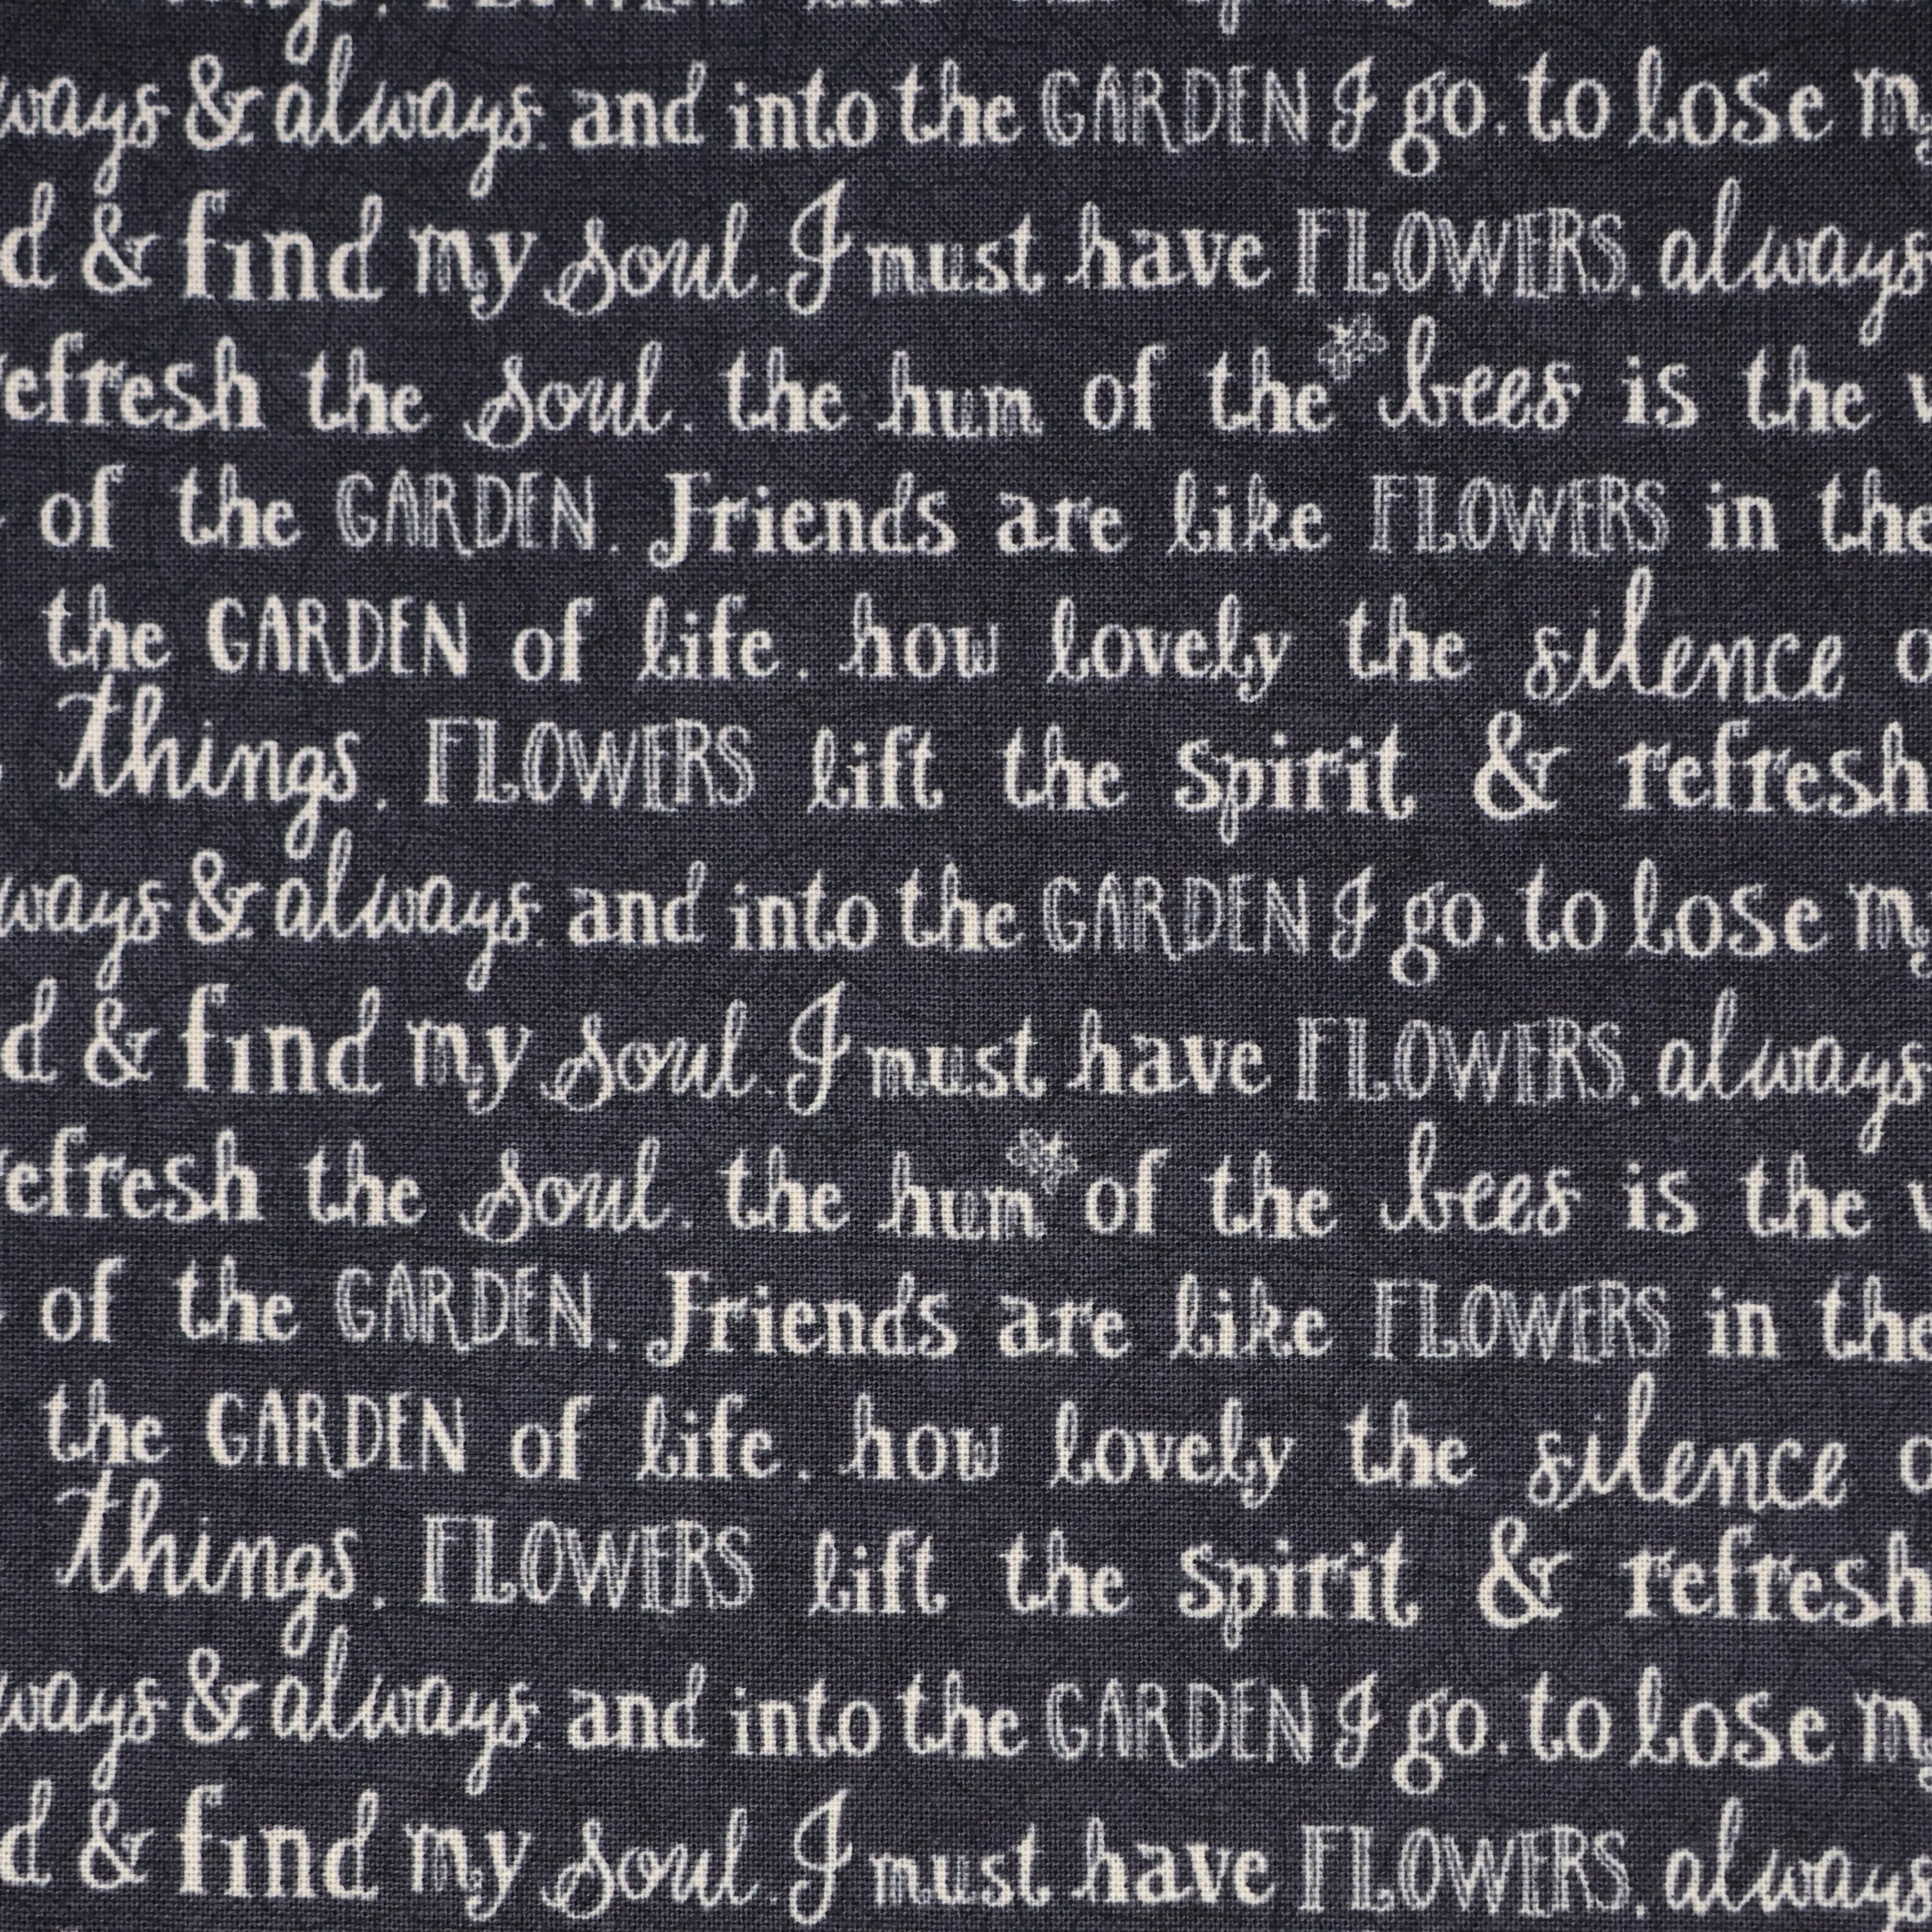 things. FLOWERS lift the spirit &
ways & always. and into the GARDEN I go. to lose my
d & find my soul. I must have FLOWERS. always
refresh the soul. the hum of the bees is the v
of the GARDEN. Friends are like FLOWERS in the
the GARDEN of life. how lovely the silence o
things. FLOWERS lift the spirit & refresh
ways & always. and into the GARDEN I go. to lose my
d & find my soul. I must have FLOWERS. always
refresh the soul. the hum of the bees is the v
of the GARDEN. Friends are like FLOWERS in the
the GARDEN of life. how lovely the silence o
things. FLOWERS lift the spirit & refresh
ways & always. and into the GARDEN I go. to lose my
d & find my soul. I must have FLOWERS. always